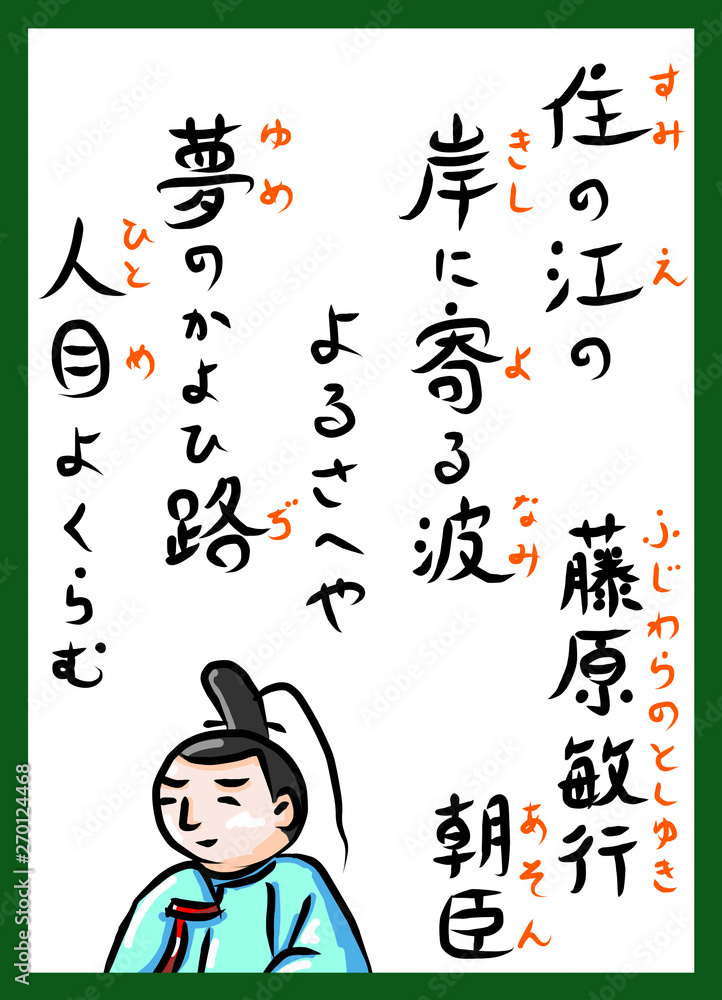 住の江の
すみ え
岸に寄る波
きし よ なみ
よるさへや
夢のかよひ路
ゆめ ぢ
人目よくらむ
ひと め
藤原敏行
ふじわらのとしゆき
朝臣
あそん
Adobe Stock
Adobe Stock | #270124468